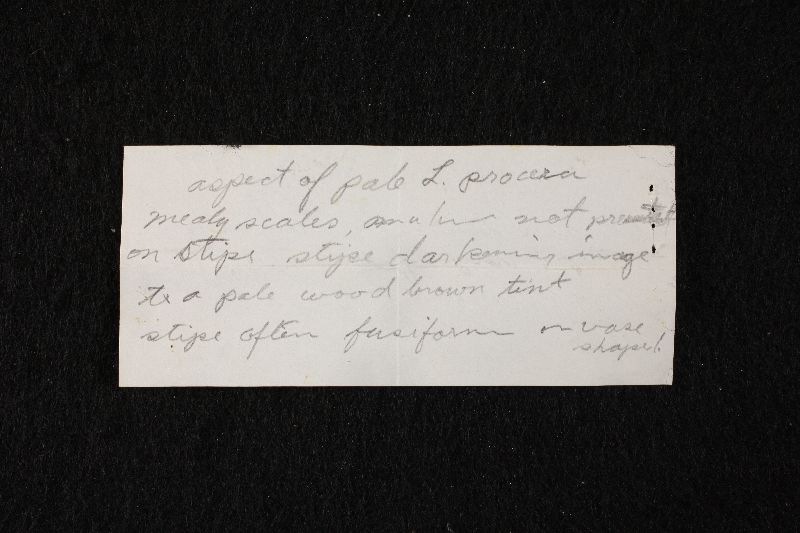 aspect of pale L. procera
mealy scales, not present
on stipe stipe darkening in age
to a pale wood brown tint
stipe often fusiform or vase
shaped